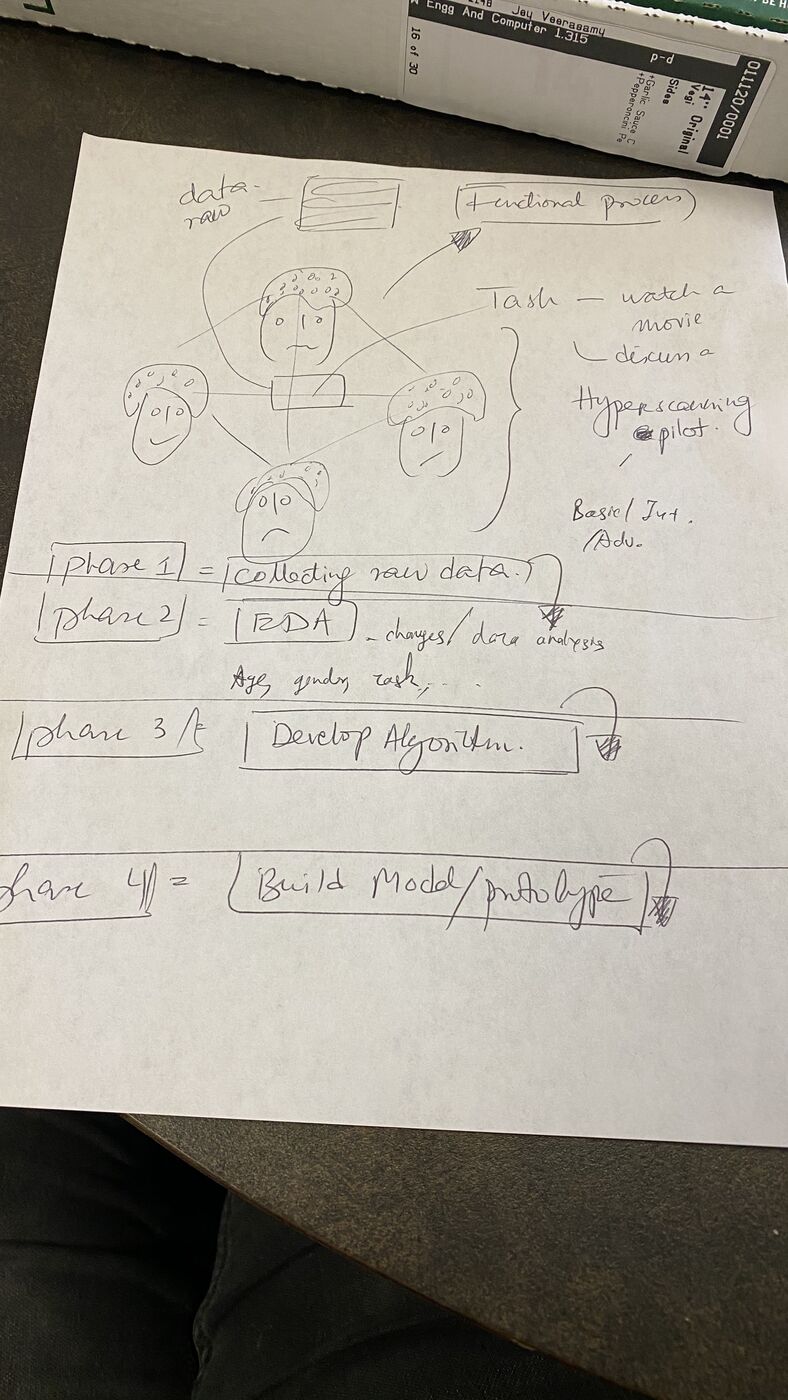 Jay Veerasamy
Engg And Computer 1.315
16 of 30
p-d
011120/0001
14" Original
Vegi
Sides
+Garlic Sauce C
+Pepperoncini Pe
data-
raw
Functional process
Task - watch a
movie
discuss
Hyperscanning
pilot.
Basic/Int.
/Adv.
phase 1 = collecting raw data.
phase 2 = EDA - changes/data analysis
Age, gender, task, ...
phase 3 Develop Algorithm.
phase 4 = Build Model/prototype